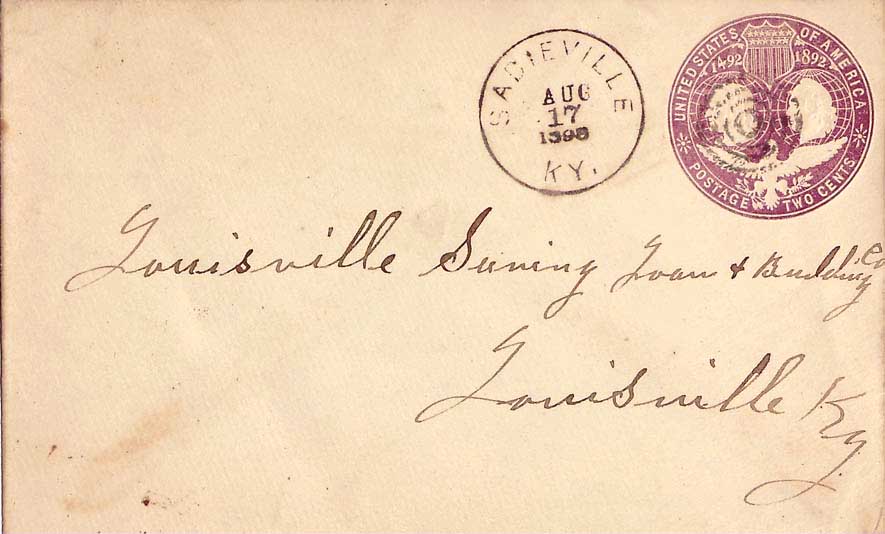 SADIEVILLE
AUG
17
1898
KY.
UNITED STATES OF AMERICA.
1492 1892
POSTAGE TWO CENTS.
Louisville Saving Loan & Building Co
Louisville Ky